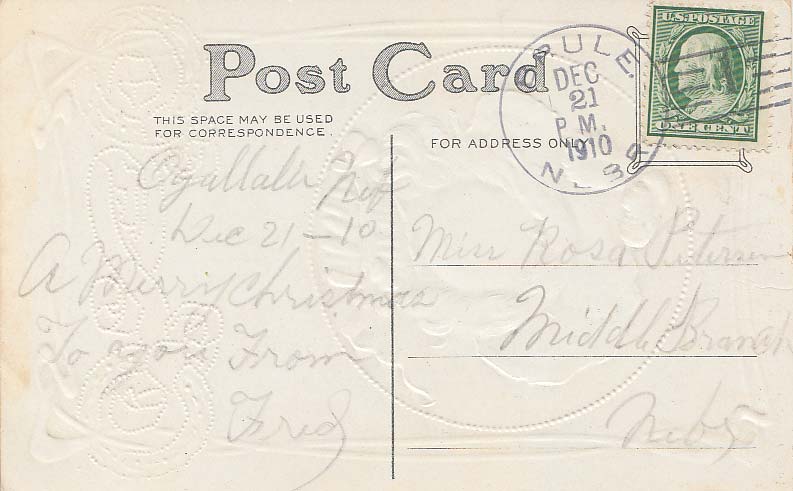 Post Card
THIS SPACE MAY BE USED
FOR CORRESPONDENCE.
FOR ADDRESS ONLY
BRULE.
DEC
21
P.M.
1910
NEBR
U.S. POSTAGE
ONE CENT
Ogallalla Neb
Dec 21-10
A Merry Christmas
To you From
Fred
Miss Rosa Petersen
Middle Branch
Nebr